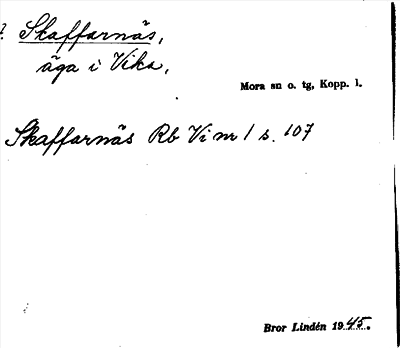 ? Skaffarnäs,
äga i Vika,
Mora sn o. tg, Kopp. l.
Skaffarnäs Rb Vi nr 1 s. 107
Bror Lindén 1945.